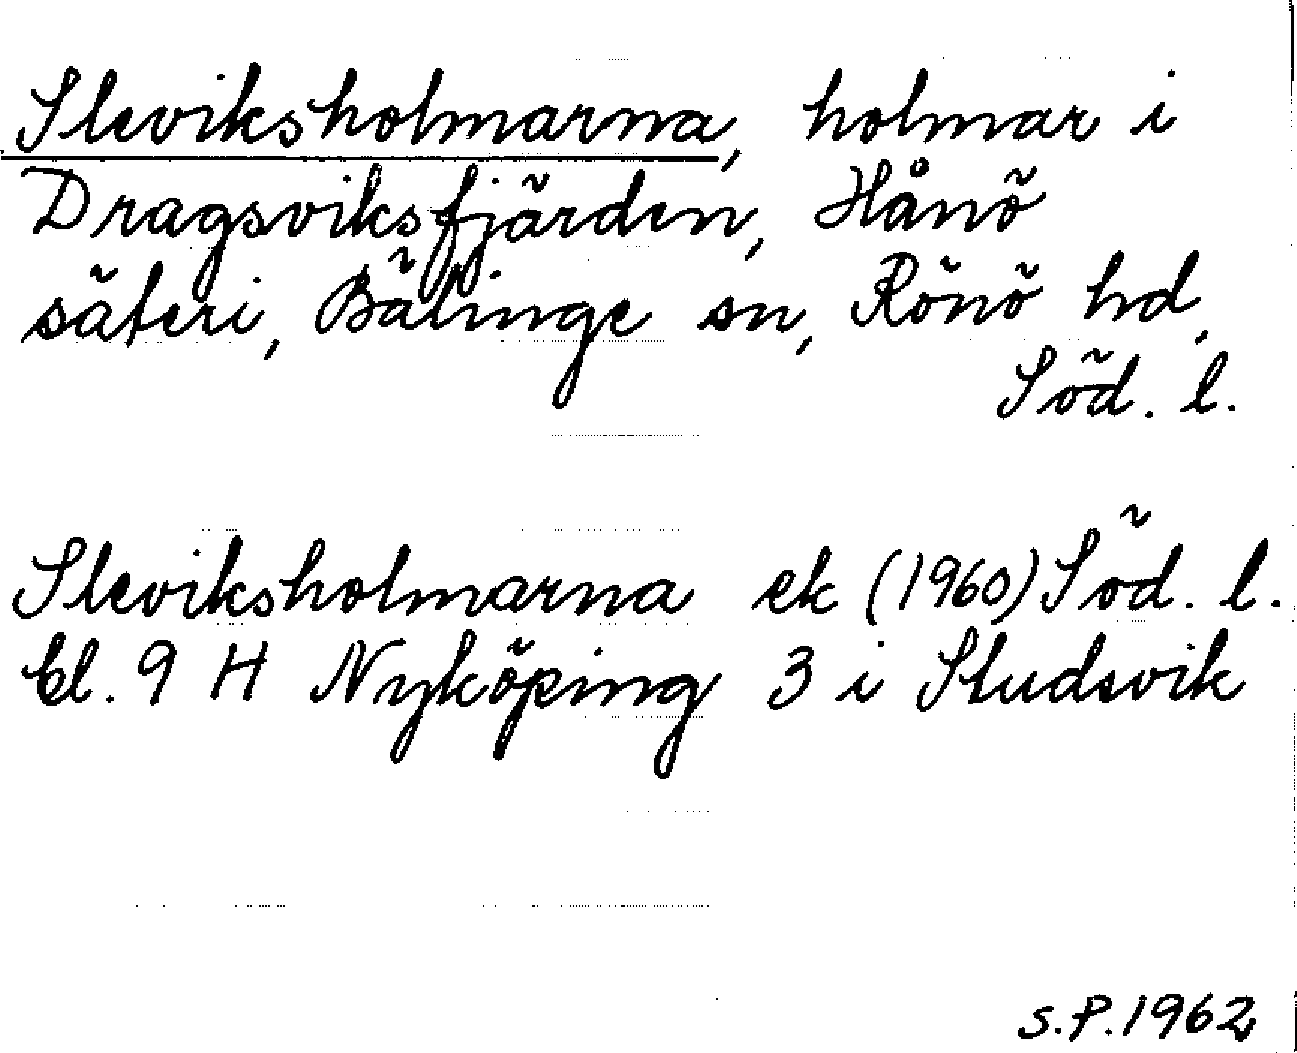 Sleviksholmarna, holmar i
Dragsviksfjärden, Hånö
säteri, Bälinge sn, Rönö hd,
Söd. l.
Sleviksholmarna ek (1960) Söd. l.
bl. 9 H Nyköping 3 i Studsvik
S.P. 1962